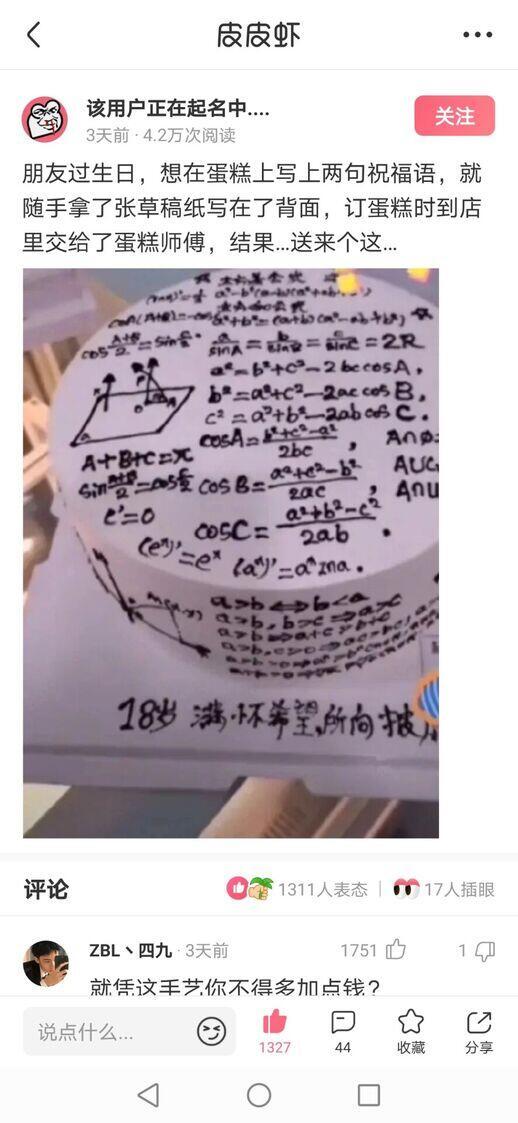 皮皮虾
该用户正在起名中....
3天前 · 4.2万次阅读
关注
朋友过生日，想在蛋糕上写上两句祝福语，就
随手拿了张草稿纸写在了背面，订蛋糕时到店
里交给了蛋糕师傅，结果...送来个这...
cos(A+B)/2=sin C/2
a/sinA = b/sinB = c/sinC = 2R
a²=b²+c²-2bccosA,
b²=a²+c²-2accosB,
c²=a²+b²-2abcosC.
cosA=(b²+c²-a²)/2bc,
A+B+C=π
sin(A+B)/2=cos C/2
cosB=(a²+c²-b²)/2ac,
c'=0
cosC=(a²+b²-c²)/2ab.
(eˣ)'=eˣ
(aˣ)'=aˣlna.
a>b⟺b<a
a>b, b>c⇒a>c
a>b⇒a+c>b+c
18岁 满怀希望,所向披
评论
1311人表态
17人插眼
ZBL丶四九 · 3天前
1751
1
就凭这手艺你不得多加点钱?
说点什么...
1327
44
收藏
分享